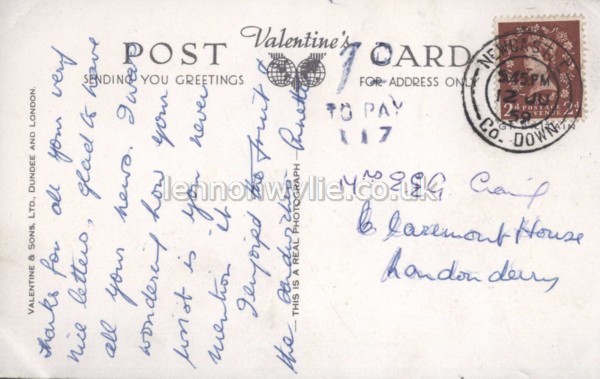 POST Valentine's CARD
SENDING YOU GREETINGS
FOR ADDRESS ONLY
TO PAY
117
NEWCASTLE
5.45PM
59
Co. DOWN
2d POSTAGE REVENUE 2d
VALENTINE & SONS, LTD., DUNDEE AND LONDON.
THIS IS A REAL PHOTOGRAPH
Thanks for all your very
nice letters, glad to have
all your news. I was
wondering how your
wrist is you never
mention it
I enjoyed the fruit &
the sandwiches.
Mrs Craig
Claremont House
Londonderry
lennonwylie.co.uk